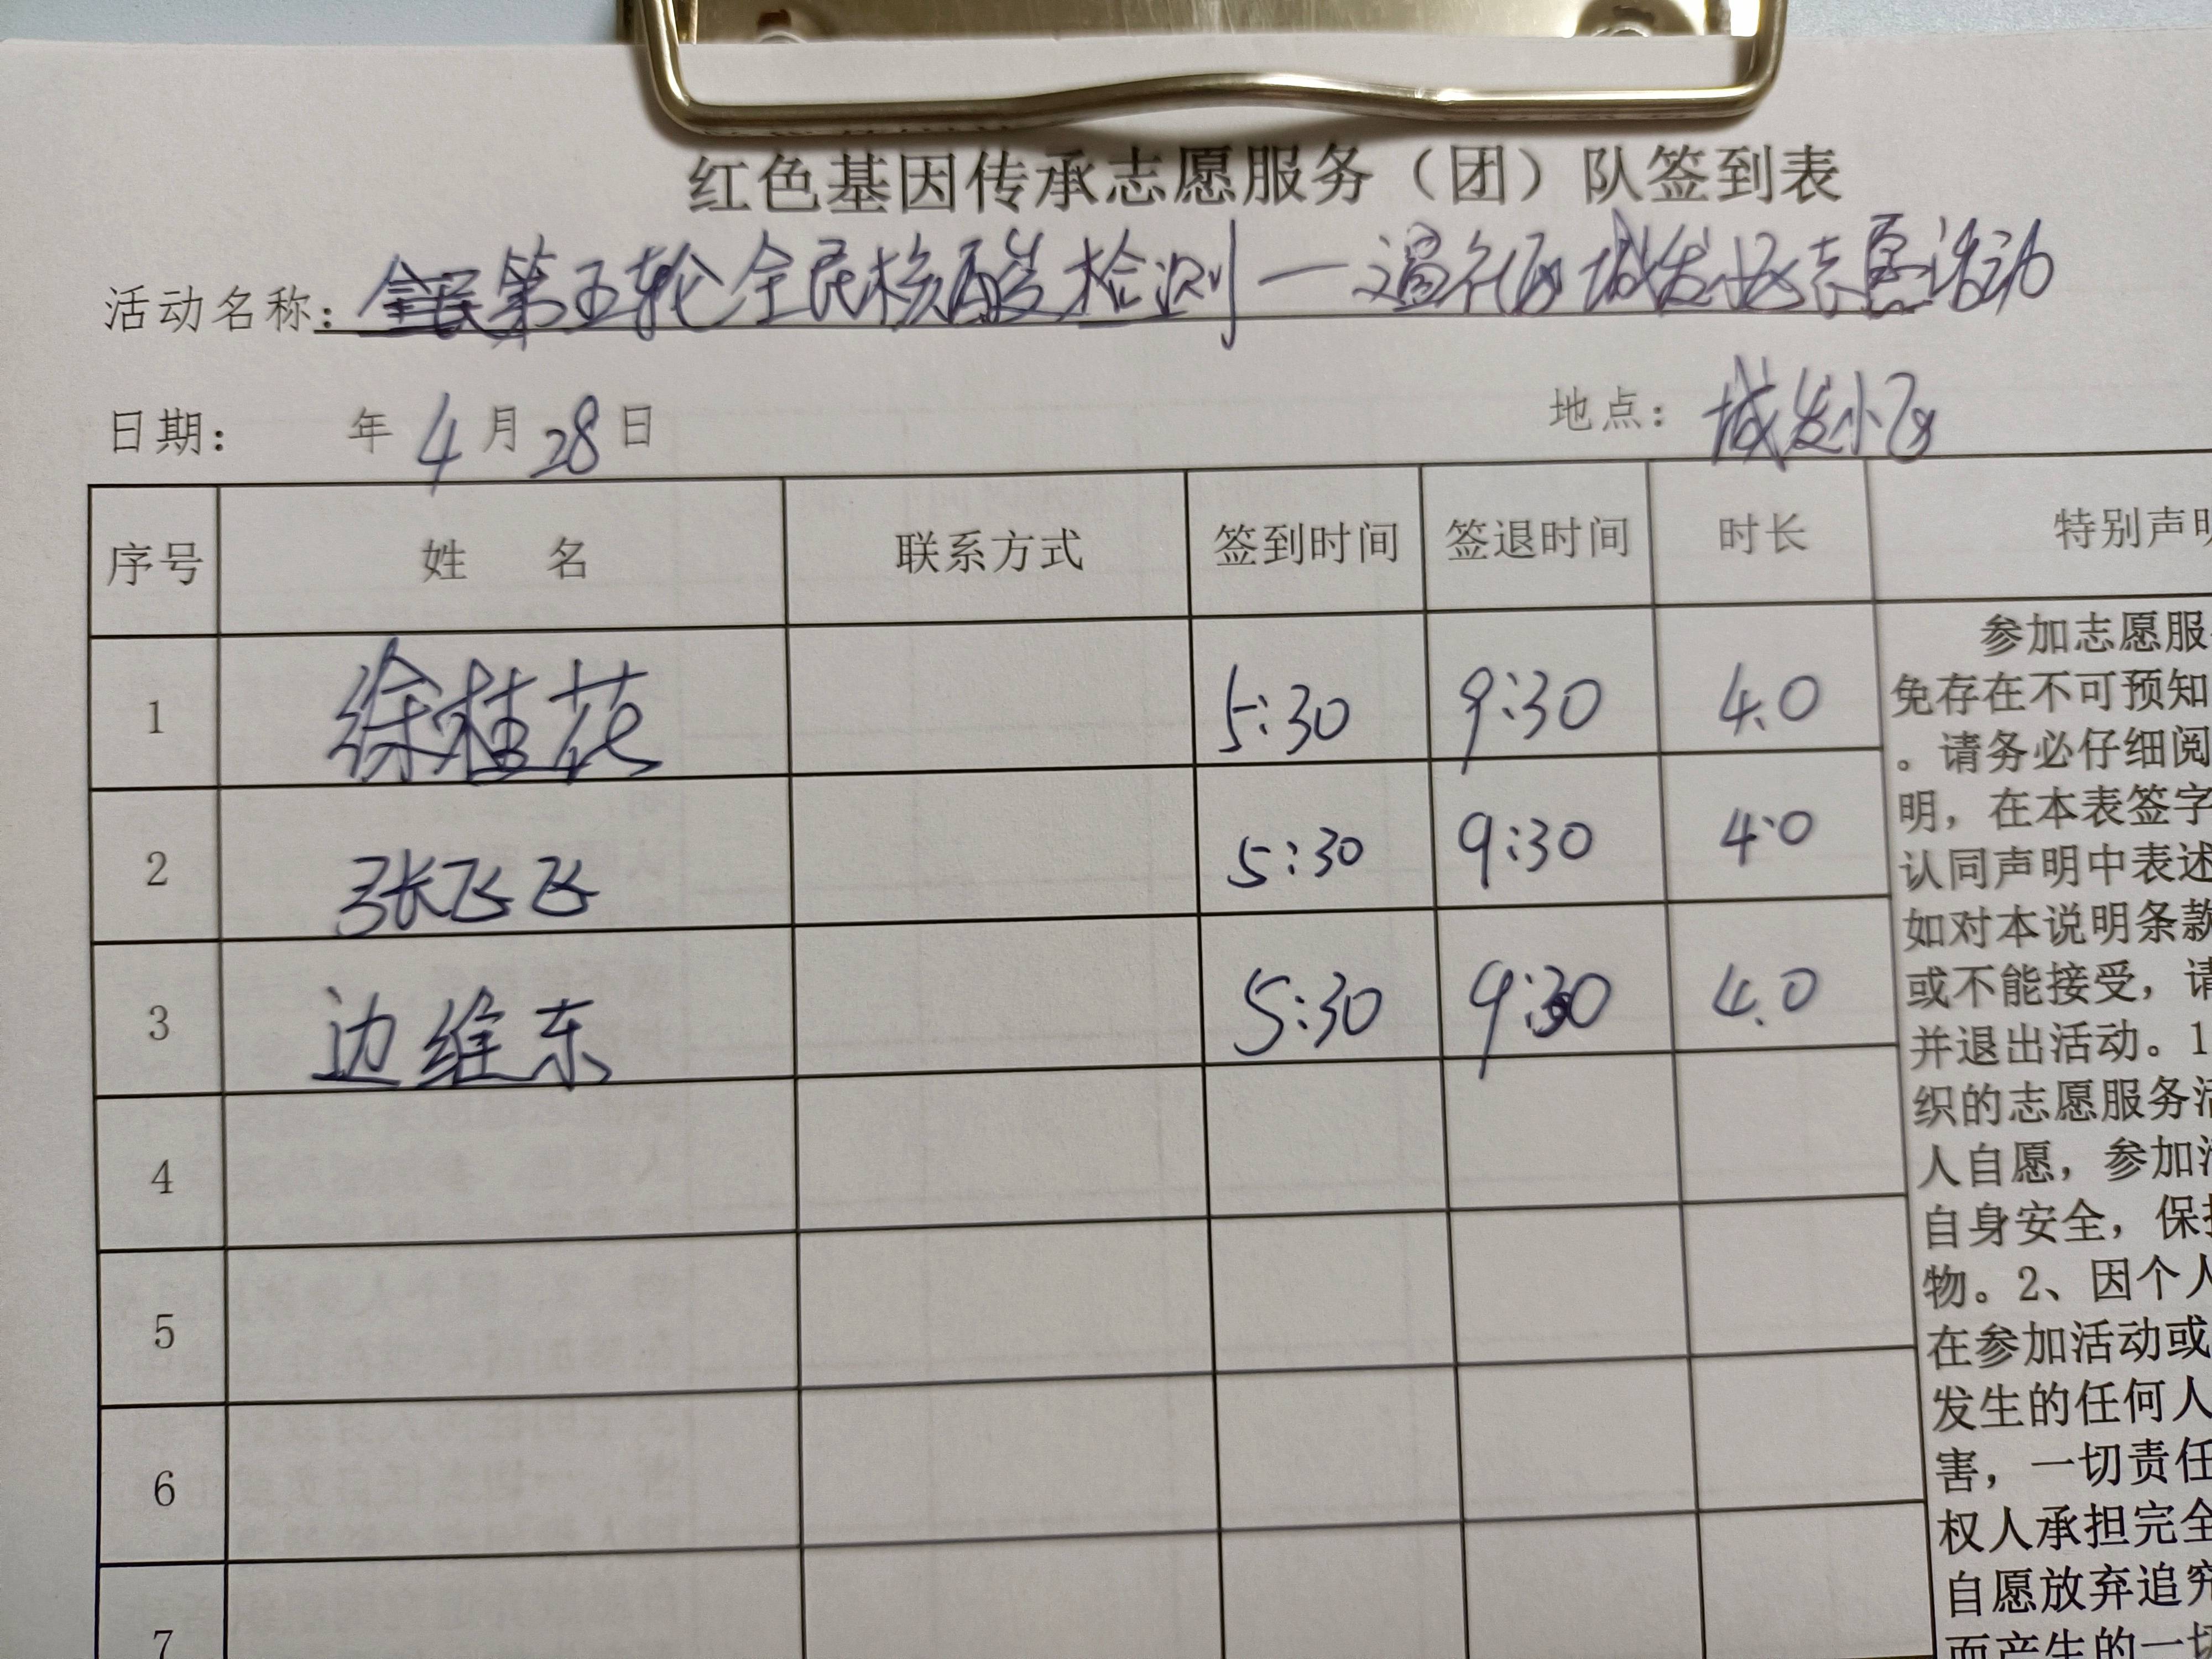 红色基因传承志愿服务（团）队签到表
活动名称：第五轮全民核酸检测一 社区城发小区志愿活动
日期： 年 4 月 28 日 地点：城发小区
序号 姓 名 联系方式 签到时间 签退时间 时长 特别声明
1 徐桂花 5:30 9:30 4.0
2 张飞飞 5:30 9:30 4.0
3 边维东 5:30 9:30 4.0
4
5
6
7
参加志愿服
免存在不可预知
。请务必仔细阅
明，在本表签字
认同声明中表述
如对本说明条款
或不能接受，请
并退出活动。1
织的志愿服务活
人自愿，参加活
自身安全，保护
物。2、因个人
在参加活动或
发生的任何人
害，一切责任
权人承担完全
自愿放弃追究
而产生的一切